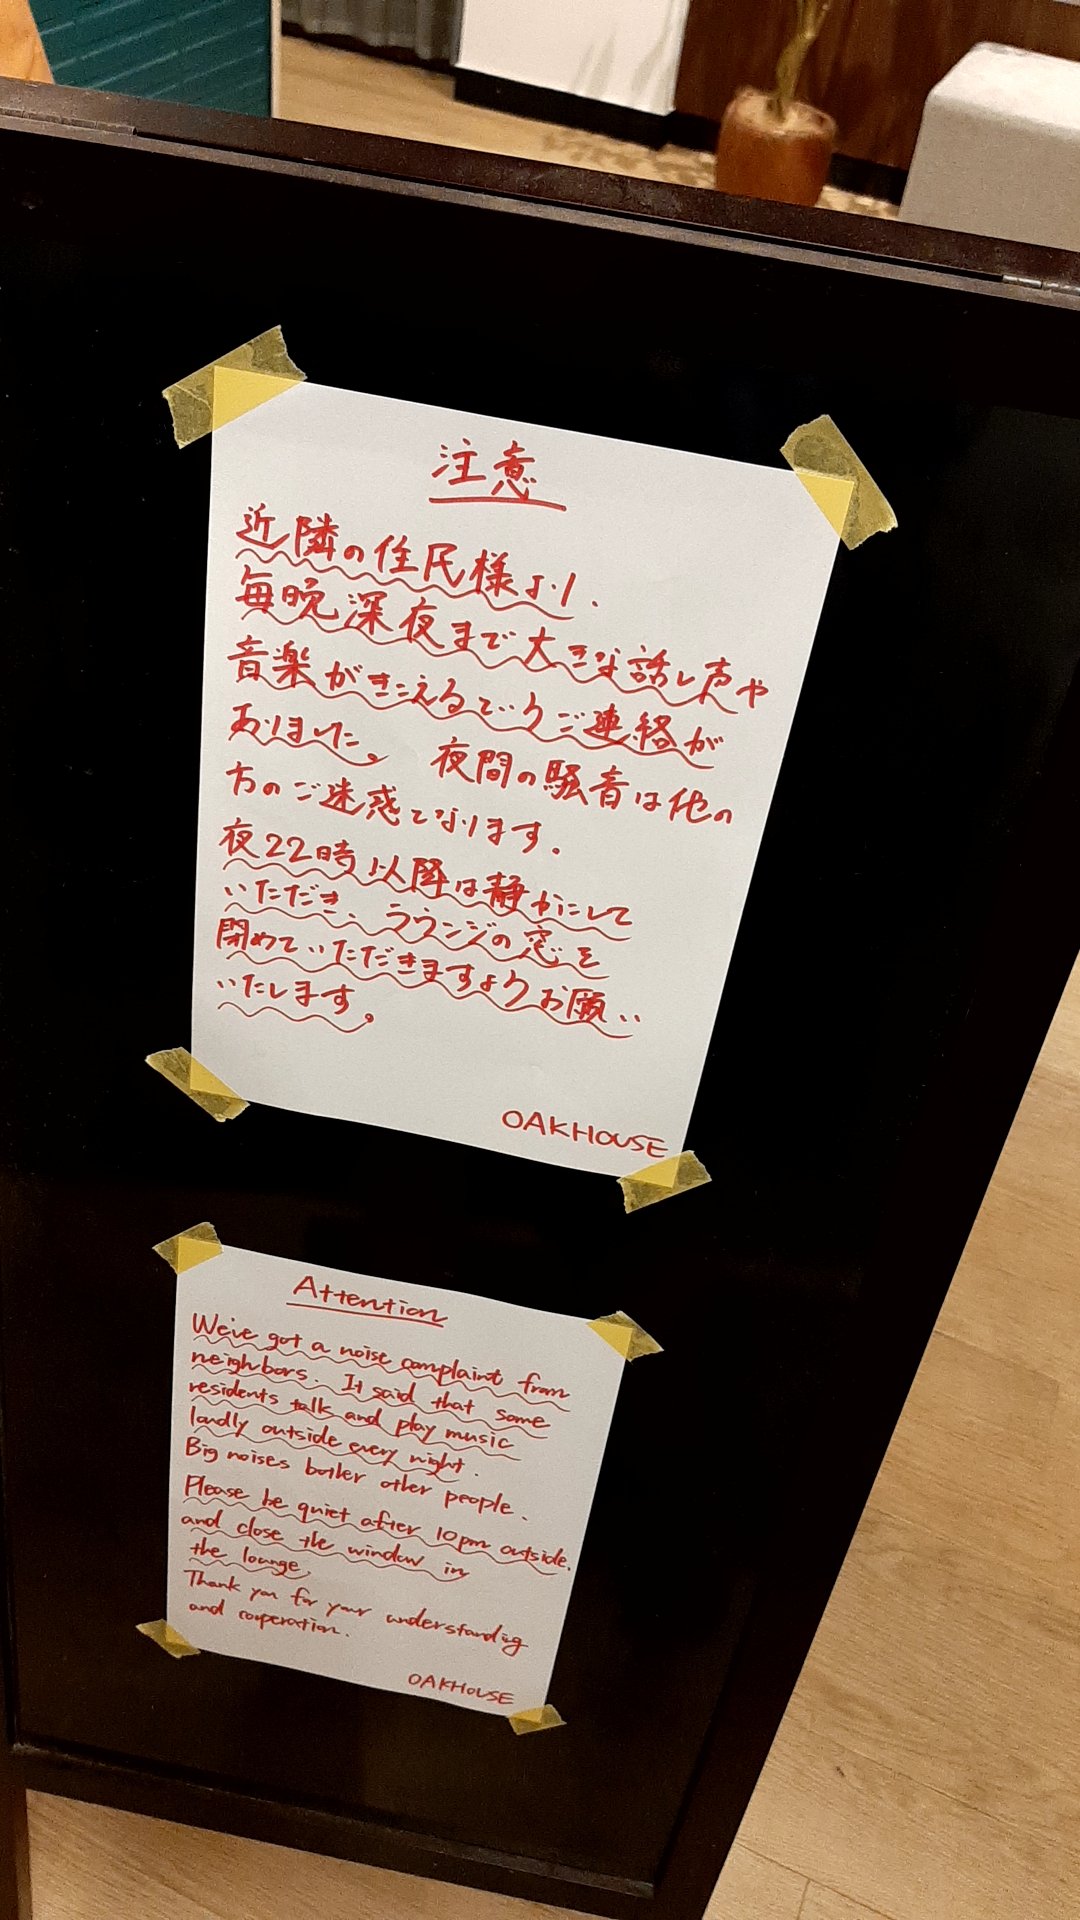 注意
近隣の住民様より、
毎晩深夜まで大きな話し声や
音楽がきこえるというご連絡が
ありました。 夜間の騒音は他の
方のご迷惑となります。
夜22時以降は静かにして
いただき、ラウンジの窓を
閉めていただきますようお願い
いたします。
OAKHOUSE
Attention
We've got a noise complaint from
neighbors. It said that some
residents talk and play music
loudly outside every night.
Big noises bother other people.
Please be quiet after 10pm outside.
and close the window in
the lounge.
Thank you for your understanding
and cooperation.
OAKHOUSE